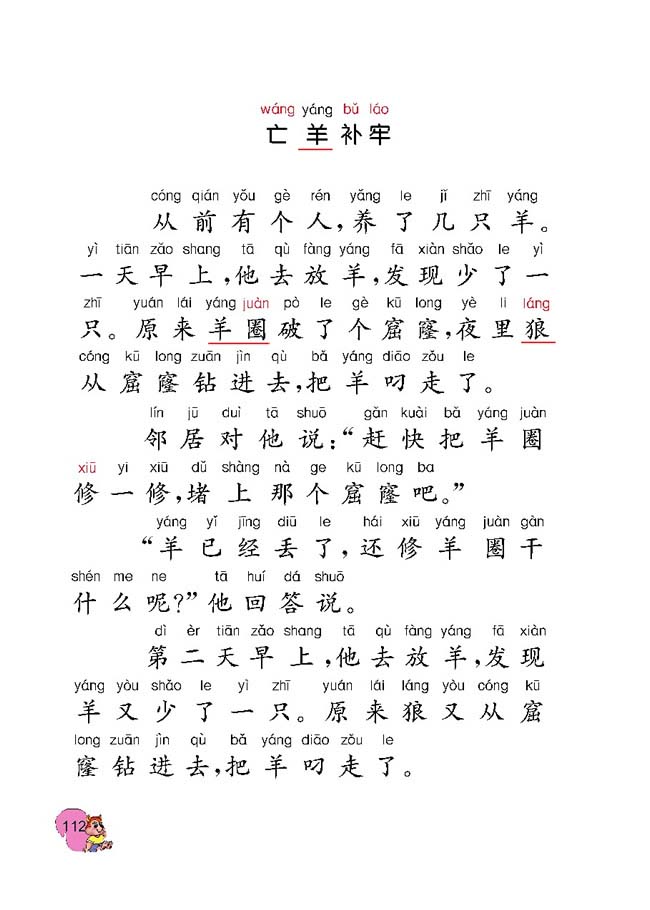 wáng yáng bǔ láo
亡羊补牢
cóng qián yǒu gè rén yǎng le jǐ zhī yáng
从前有个人,养了几只羊。
yì tiān zǎo shang tā qù fàng yáng fā xiàn shǎo le yì
一天早上,他去放羊,发现少了一
zhī yuán lái yáng juàn pò le gè kū long yè li láng
只。原来羊圈破了个窟窿,夜里狼
cóng kū long zuān jìn qù bǎ yáng diāo zǒu le
从窟窿钻进去,把羊叼走了。
lín jū duì tā shuō gǎn kuài bǎ yáng juàn
邻居对他说:“赶快把羊圈
xiū yi xiū dǔ shàng nà ge kū long ba
修一修,堵上那个窟窿吧。”
yáng yǐ jīng diū le hái xiū yáng juàn gàn
“羊已经丢了,还修羊圈干
shén me ne tā huí dá shuō
什么呢?”他回答说。
dì èr tiān zǎo shang tā qù fàng yáng fā xiàn
第二天早上,他去放羊,发现
yáng yòu shǎo le yì zhī yuán lái láng yòu cóng kū
羊又少了一只。原来狼又从窟
long zuān jìn qù bǎ yáng diāo zǒu le
窿钻进去,把羊叼走了。
112